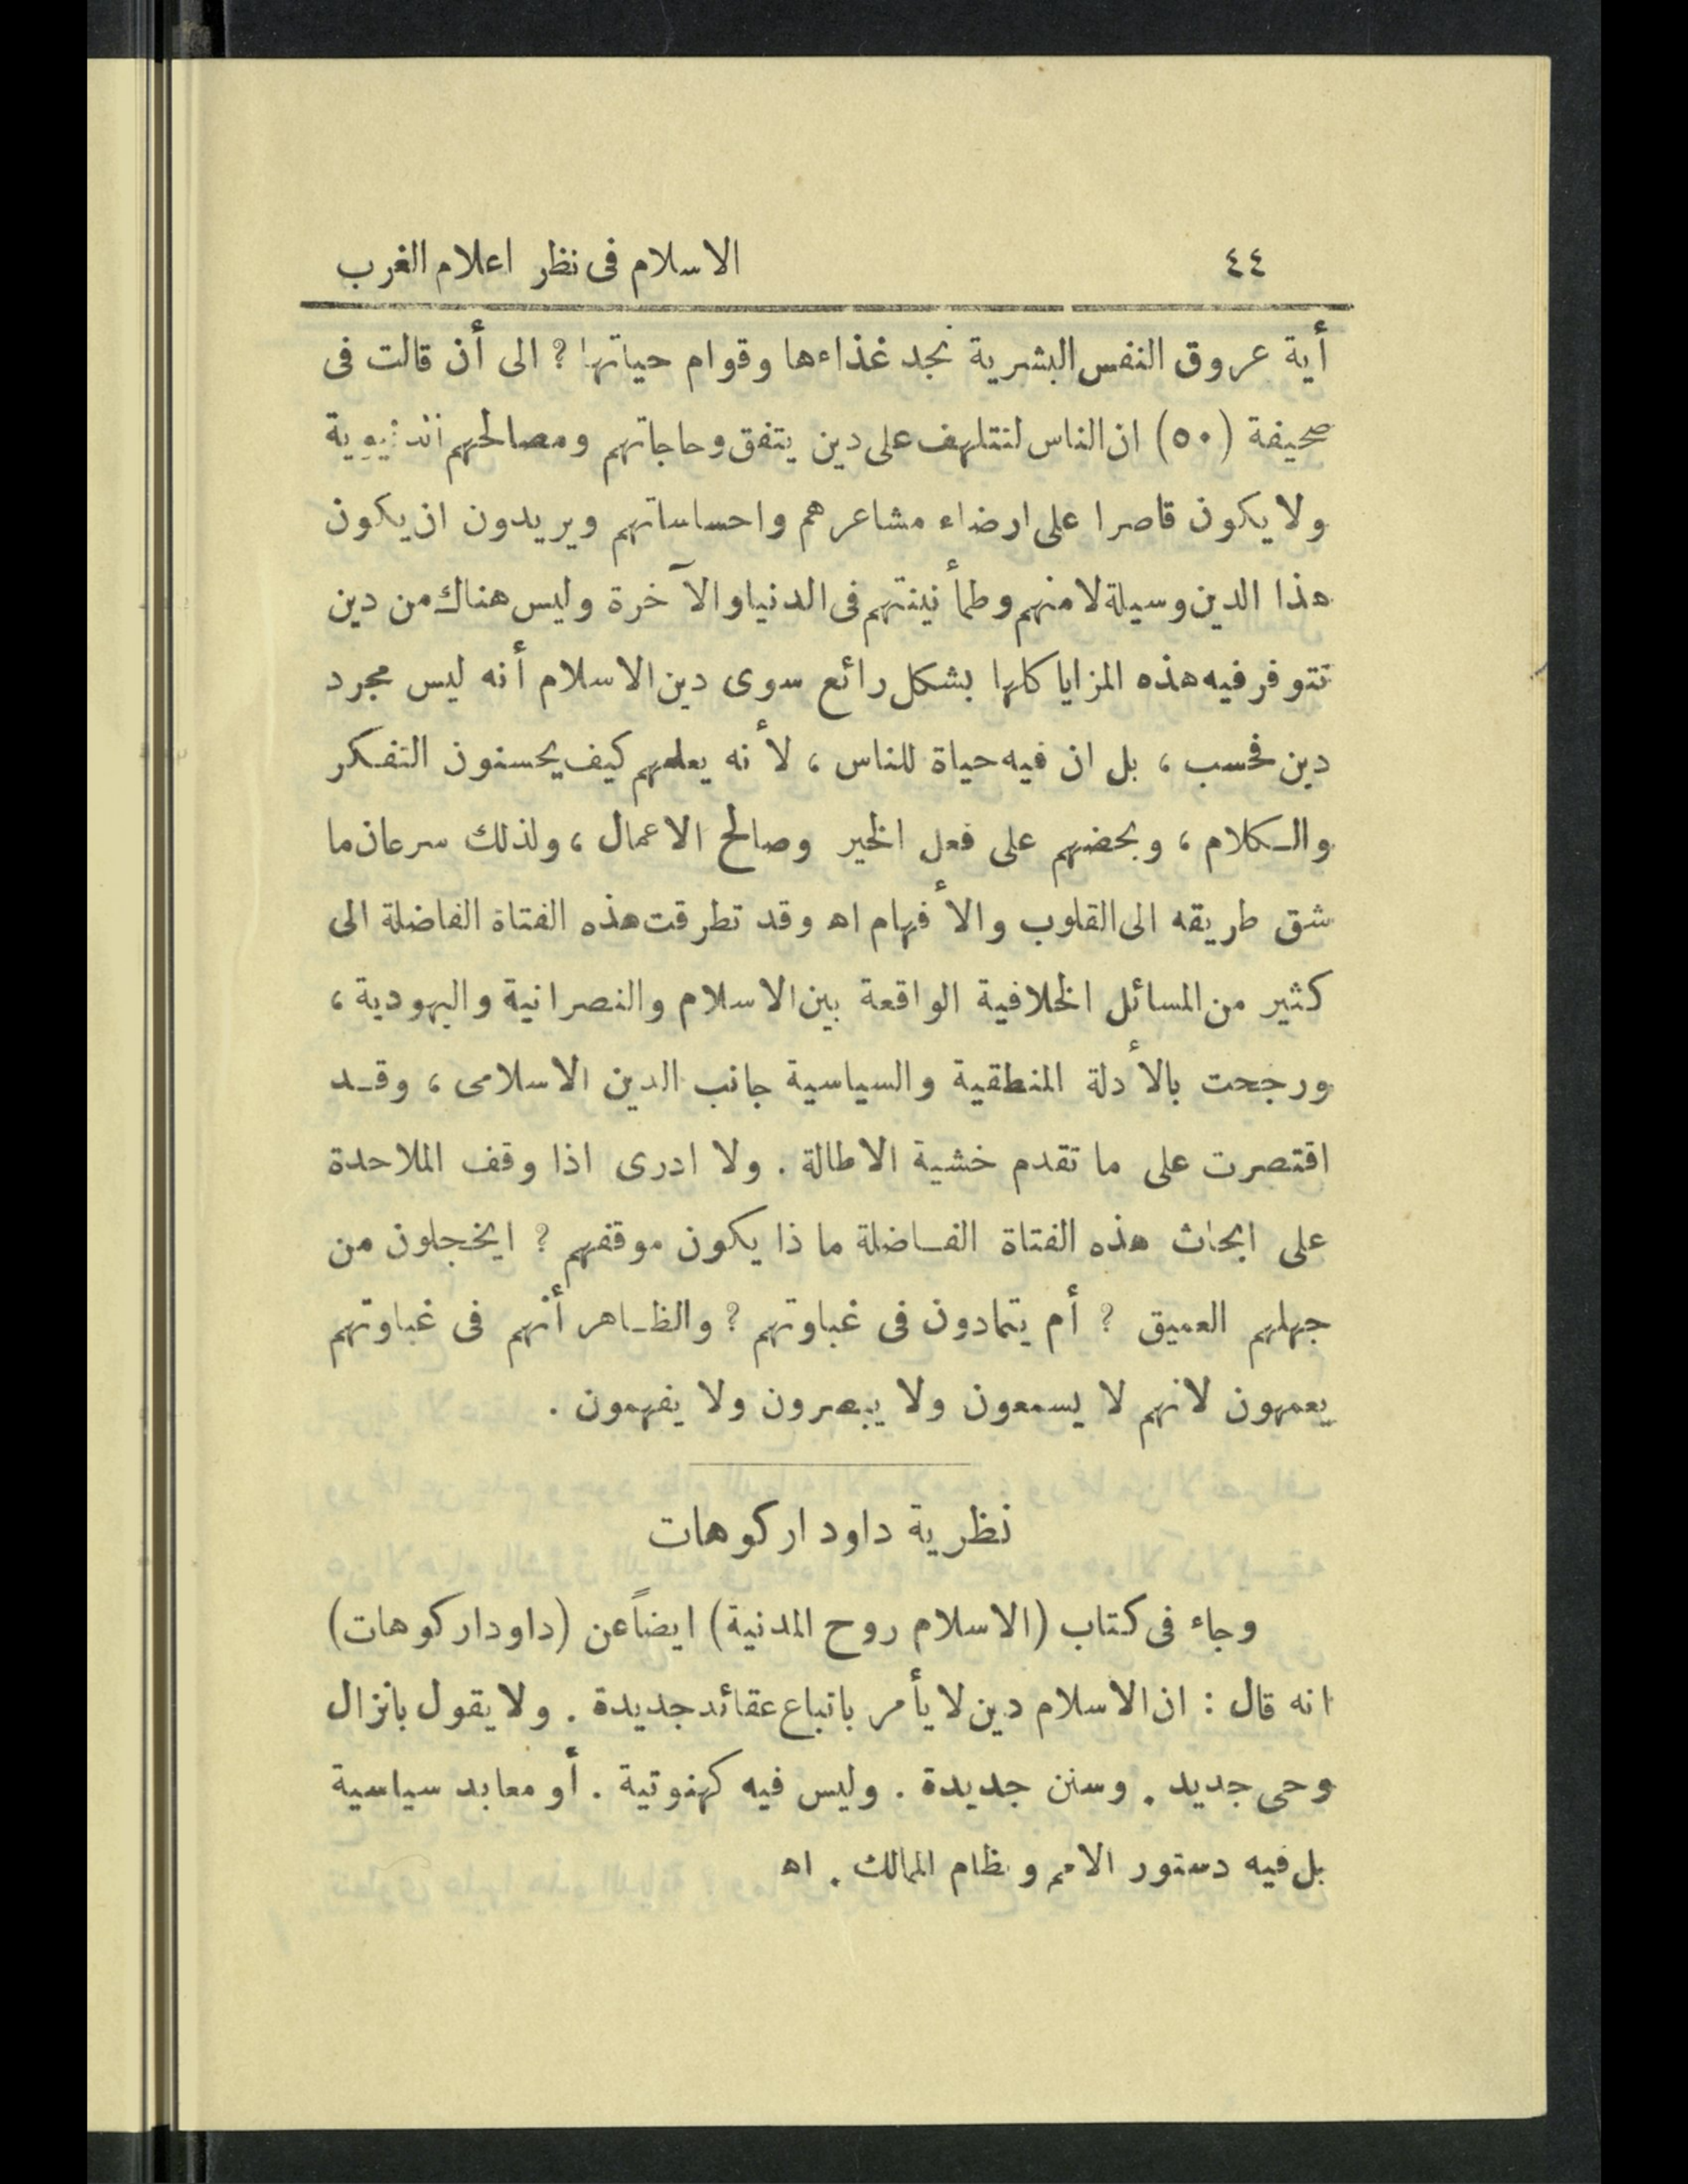 ٤٤ الاسلام فى نظر اعلام الغرب
أية عروق النفس البشرية نجد غذاءها وقوام حياتها؟ الى أن قالت فى
صحيفة (٥٠) ان الناس لنتلهف على دين يتفق وحاجاتهم ومصالحهم الدنيوية
ولا يكون قاصرا على ارضاء مشاعرهم واحساساتهم ويريدون ان يكون
هذا الدين وسيلة لامنهم وطمأنينتهم فى الدنيا والآخرة وليس هناك من دين
تتوفر فيه هذه المزايا كلها بشكل رائع سوى دين الاسلام أنه ليس مجرد
دين فحسب ، بل ان فيه حياة للناس ، لأنه يعلمهم كيف يحسنون التفكر
والـكلام ، وبحضهم على فعل الخير وصالح الاعمال ، ولذلك سرعان ما
شق طريقه الى القلوب والأفهام اه وقد تطرقت هذه الفتاة الفاضلة الى
كثير من المسائل الخلافية الواقعة بين الاسلام والنصرانية واليهودية ،
ورجحت بالأدلة المنطقية والسياسية جانب الدين الاسلامى ، وقـد
اقتصرت على ما تقدم خشية الاطالة . ولا ادرى اذا وقف الملاحدة
على ابحاث هذه الفتاة الفـاضلة ما ذا يكون موقفهم ؟ ايخجلون من
جهلهم العميق ؟ أم يتمادون فى غباوتهم ؟ والظـاهر أنهم فى غباوتهم
يعمهون لانهم لا يسمعون ولا يبصرون ولا يفهمون .
نظرية داود اركوهات
وجاء فى كتاب (الاسلام روح المدنية) ايضاً عن (داود اركوهات)
انه قال : ان الاسلام دين لا يأمر باتباع عقائد جديدة . ولا يقول بانزال
وحى جديد . وسنن جديدة . وليس فيه كهنوتية . أو معابد سياسية
بل فيه دستور الامم ونظام الممالك . اه